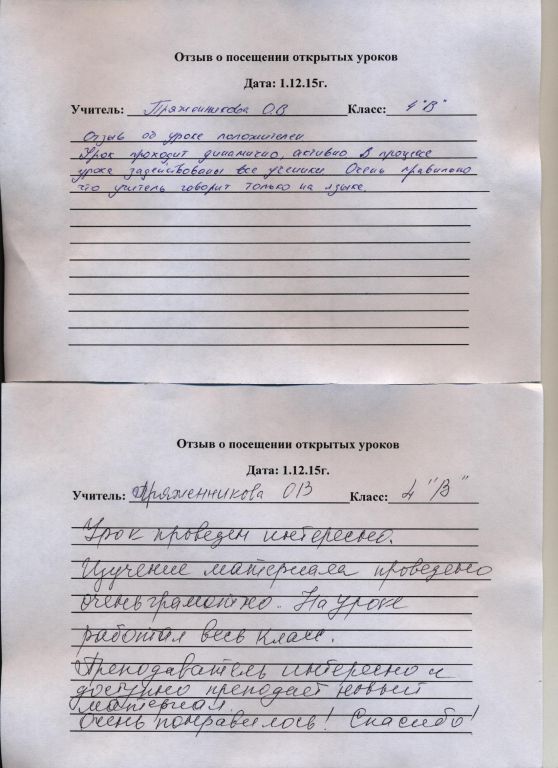 Отзыв о посещении открытых уроков
Дата: 1.12.15г.
Учитель: Пряженникова О.В Класс: 4 "В"
Отзыв об уроке положителен
Урок проходит динамично, активно В процессе
урока задействованы все ученики Очень правильно
что учитель говорит только на языке.
Отзыв о посещении открытых уроков
Дата: 1.12.15г.
Учитель: Пряженникова ОВ Класс: 4 "В"
Урок проведен интересно.
Изучение материала проведено
очень грамотно. На уроке
работал весь класс.
Преподаватель интересно и
доступно преподает новый
материал.
Очень понравилось! Спасибо!